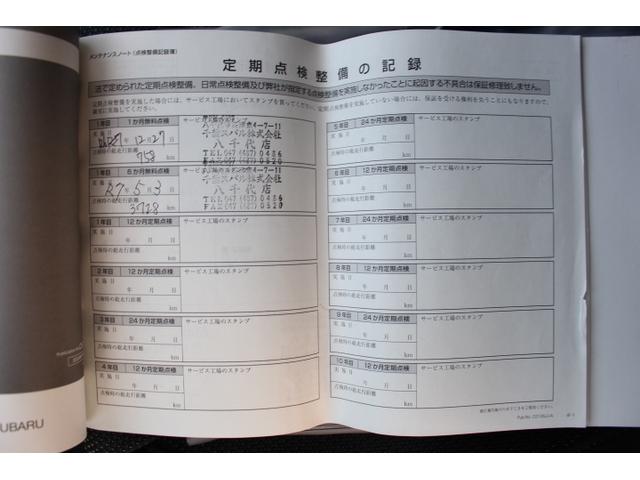 メンテナンスノート(点検整備記録簿)
定期点検整備の記録
法で定められた定期点検整備、日常点検整備及び弊社が指定する点検整備を実施しなかったことに起因する不具合は保証修理致しません。
定期点検整備を実施した場合には、サービス工場においてスタンプを
1年目 1か月無料点検
実施日 年12月27日
点検時の総走行距離
758 km
千葉スバル株式会社
八千代店
TEL 047 (487) 0486
FAX 047 (487) 0520
1年目 6か月無料点検
実施日 27年5月3日
点検時の総走行距離
3728 km
千葉スバル株式会社
八千代店
TEL 047 (487) 0486
FAX 047 (487) 0520
1年目 12か月定期点検
サービス工場のスタンプ
実施日
年 月 日
点検時の総走行距離
km
2年目 12か月定期点検
サービス工場のスタンプ
実施日
年 月 日
点検時の総走行距離
km
3年目 24か月定期点検
サービス工場のスタンプ
実施日
年 月 日
点検時の総走行距離
km
4年目 12か月定期点検
サービス工場のスタンプ
実施日
年 月 日
点検時の総走行距離
km
5年目 24か月定期点検
サービス工場のスタンプ
実施日
年 月 日
点検時の総走行距離
km
6年目 12か月定期点検
サービス工場のスタンプ
実施日
年 月 日
点検時の総走行距離
km
7年目 24か月定期点検
サービス工場のスタンプ
実施日
年 月 日
点検時の総走行距離
km
8年目 12か月定期点検
サービス工場のスタンプ
実施日
年 月 日
点検時の総走行距離
km
9年目 24か月定期点検
サービス工場のスタンプ
実施日
年 月 日
点検時の総走行距離
km
10年目 12か月定期点検
サービス工場のスタンプ
実施日
年 月 日
点検時の総走行距離
km
SUBARU